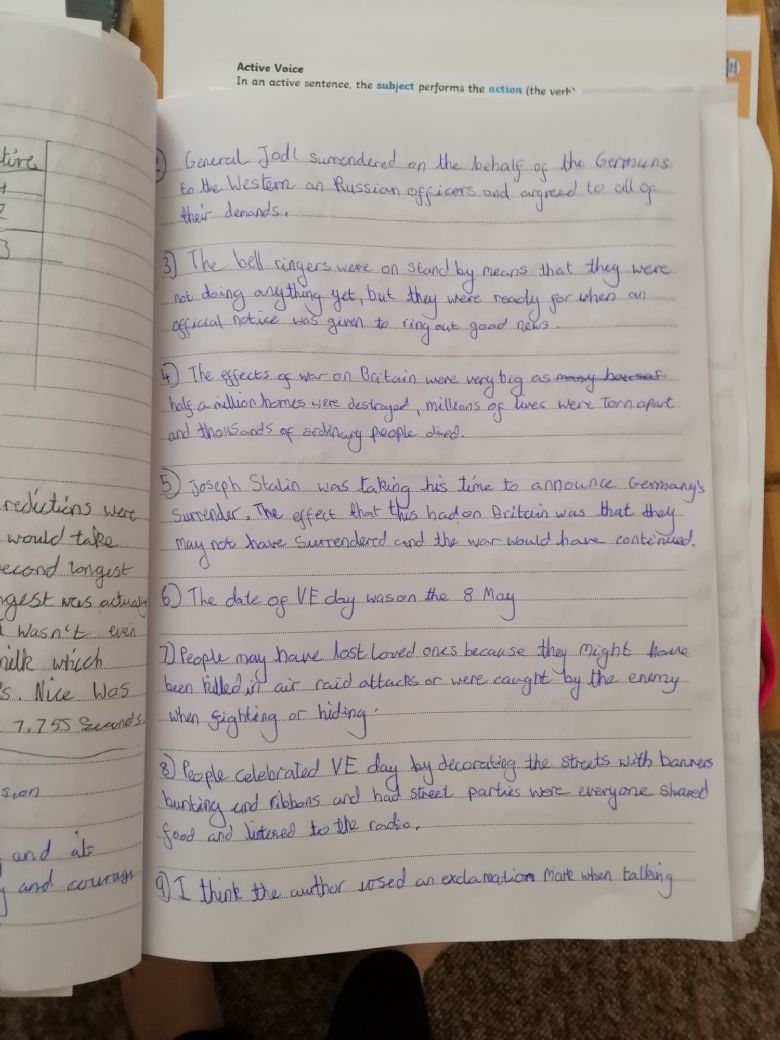 Active Voice
In an active sentence, the subject performs the action (the verb
tive
2
3
redictions were
would take
econd longest
ngest was actually
wasn't even
milk which
s. Nice was
7.755 Seconds.
sion
and its
y and courage
General Jodl surrendered on the behalf of the Germans
to the Western an Russian officers and argreed to all of
their demands.
3) The bell ringers were on stand by means that they were
not doing anything yet, but they were ready for when an
official notice was given to ring out good news.
4) The effects of war on Britain were very big as many houses
half a million homes were destroyed, millions of lives were Torn apart
and thousands of ordinary people died.
5) Joseph Stalin was taking his time to announce Germany's
surrender. The effect that this had on Britain was that they
may not have surrendered and the war would have continued.
6) The date of VE day was on the 8 May
7) People may have lost loved ones because they might have
been killed in air raid attacks or were caught by the enemy
when fighting or hiding.
8) People celebrated VE day by decorating the streets with banners
bunting and ribbons and had street parties were everyone shared
food and listened to the radio.
9) I think the author used an exclamation mark when talking